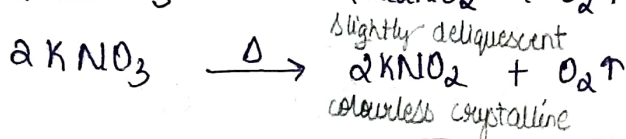 slightly deliquescent
2KNO₃ —Δ→ 2KNO₂ + O₂↑
colourless crystalline